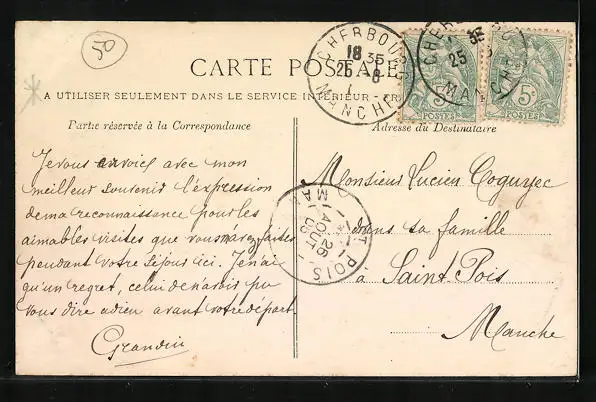 50
CARTE POSTALE
A UTILISER SEULEMENT DANS LE SERVICE INTERIEUR
CHERBOURG
18 35
25 8
MANCHE
CHERBOURG
35
25
MANCHE
5c
POSTES
5c
POSTES
Partie réservée à la Correspondance
Adresse du Destinataire
Je vous envoie avec mon
meilleur souvenir l'expression
de ma reconnaissance pour les
aimables visites que vous m'avez faites
pendant votre séjour ici. Je n'ai
qu'un regret, celui de n'avoir pu
vous dire adieu avant votre départ.
Grandin
Monsieur Lucien Coguyec
dans sa famille
à Saint Pois
Manche
ST POIS
26
AOUT
05